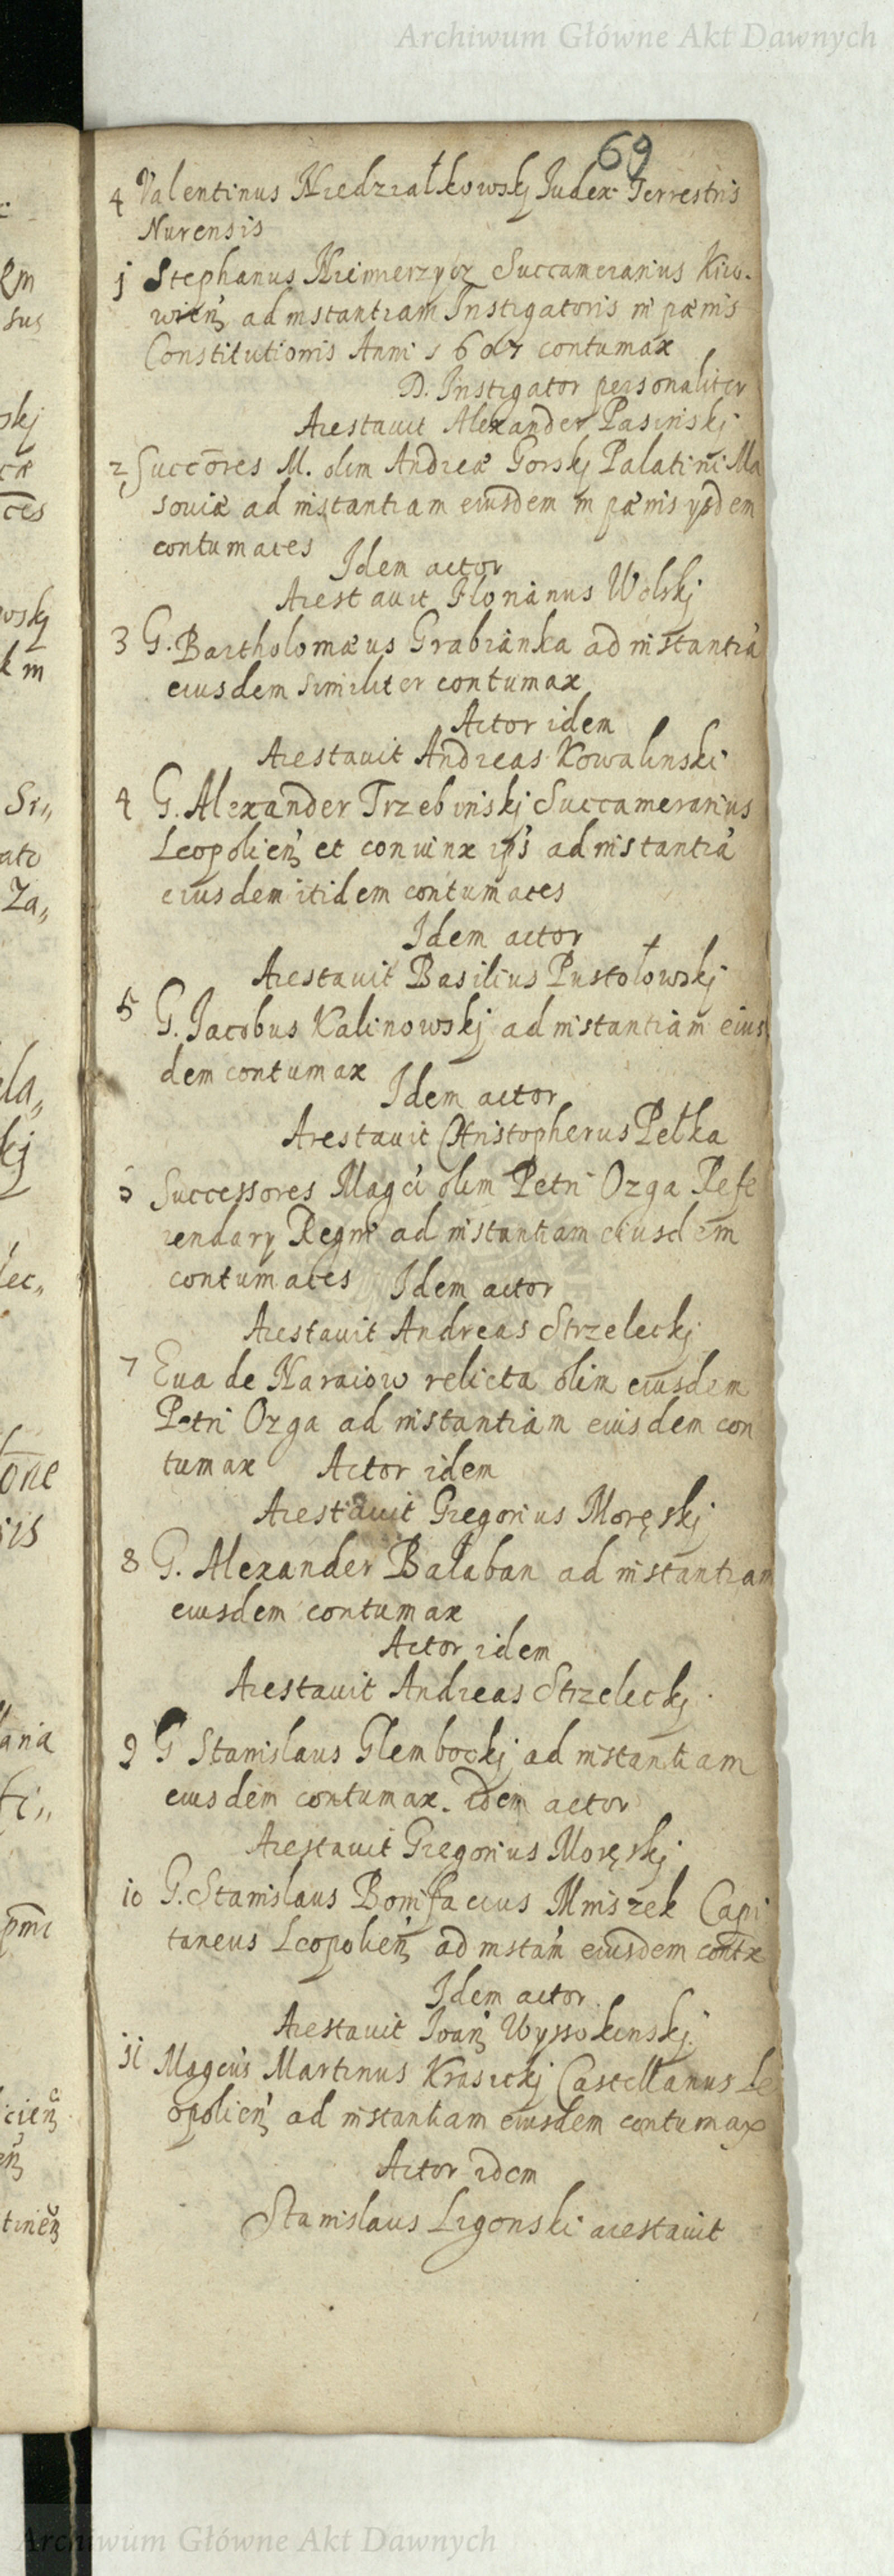 Archiwum Główne Akt Dawnych
69
4 Valentinus Niedziałkowskj Judex Terrestris
Nurensis
1 Stephanus Niemierzycz Succamerarius Kiio-
wień ad instantiam Instigatoris in pænis
Constitutionis Anni 1607 contumax
D. Instigator personaliter
Arestauit Alexander Pasinskj
2 Succōres M. olim Andreæ Gorskj Palatini Ma
souiæ ad instantiam eiusdem in pænis ysdem
contumaces Idem actor
Arestauit Florianus Wolskj
3 G. Bartholomæus Grabianka ad instantiā
eiusdem similiter contumax
Actor idem
Arestauit Andreas Kowalinski
4 G. Alexander Trzebinskj Succamerarius
Leopolień et coniunx ips ad instantiā
eiusdem itidem contumaces
Idem actor
Arestauit Basilius Pustołowskj
5 G. Jacobus Kalinowskj ad instantiam eius
dem contumax Idem actor
Arestauit Christopherus Pełka
6 Successores Magci olim Petri Ozga Refe
rendary Regni ad instantiam eiusdem
contumaces Idem actor
Arestauit Andreas Strzeleckj
7 Eua de Naraiow relicta olim eiusdem
Petri Ozga ad instantiam eiusdem con
tumax Actor idem
Arestauit Gregorius Moręskj
8 G. Alexander Bałaban ad instantiam
eiusdem contumax
Actor idem
Arestauit Andreas Strzeleckj
9 G Stanislaus Glembockj ad instantiam
eiusdem contumax. idem actor
Arestauit Gregorius Moręskj
10 G. Stanislaus Bonifacius Mniszek Capi
taneus Leopolień ad instań eiusdem contx
Idem actor
Arestauit Joań Wyssokinskj
11 Magcus Martinus Krasickj Castellanus Le
opolień ad instantiam eiusdem contumax
Actor idem
Stanislaus Ligonski arestauit
Archiwum Główne Akt Dawnych